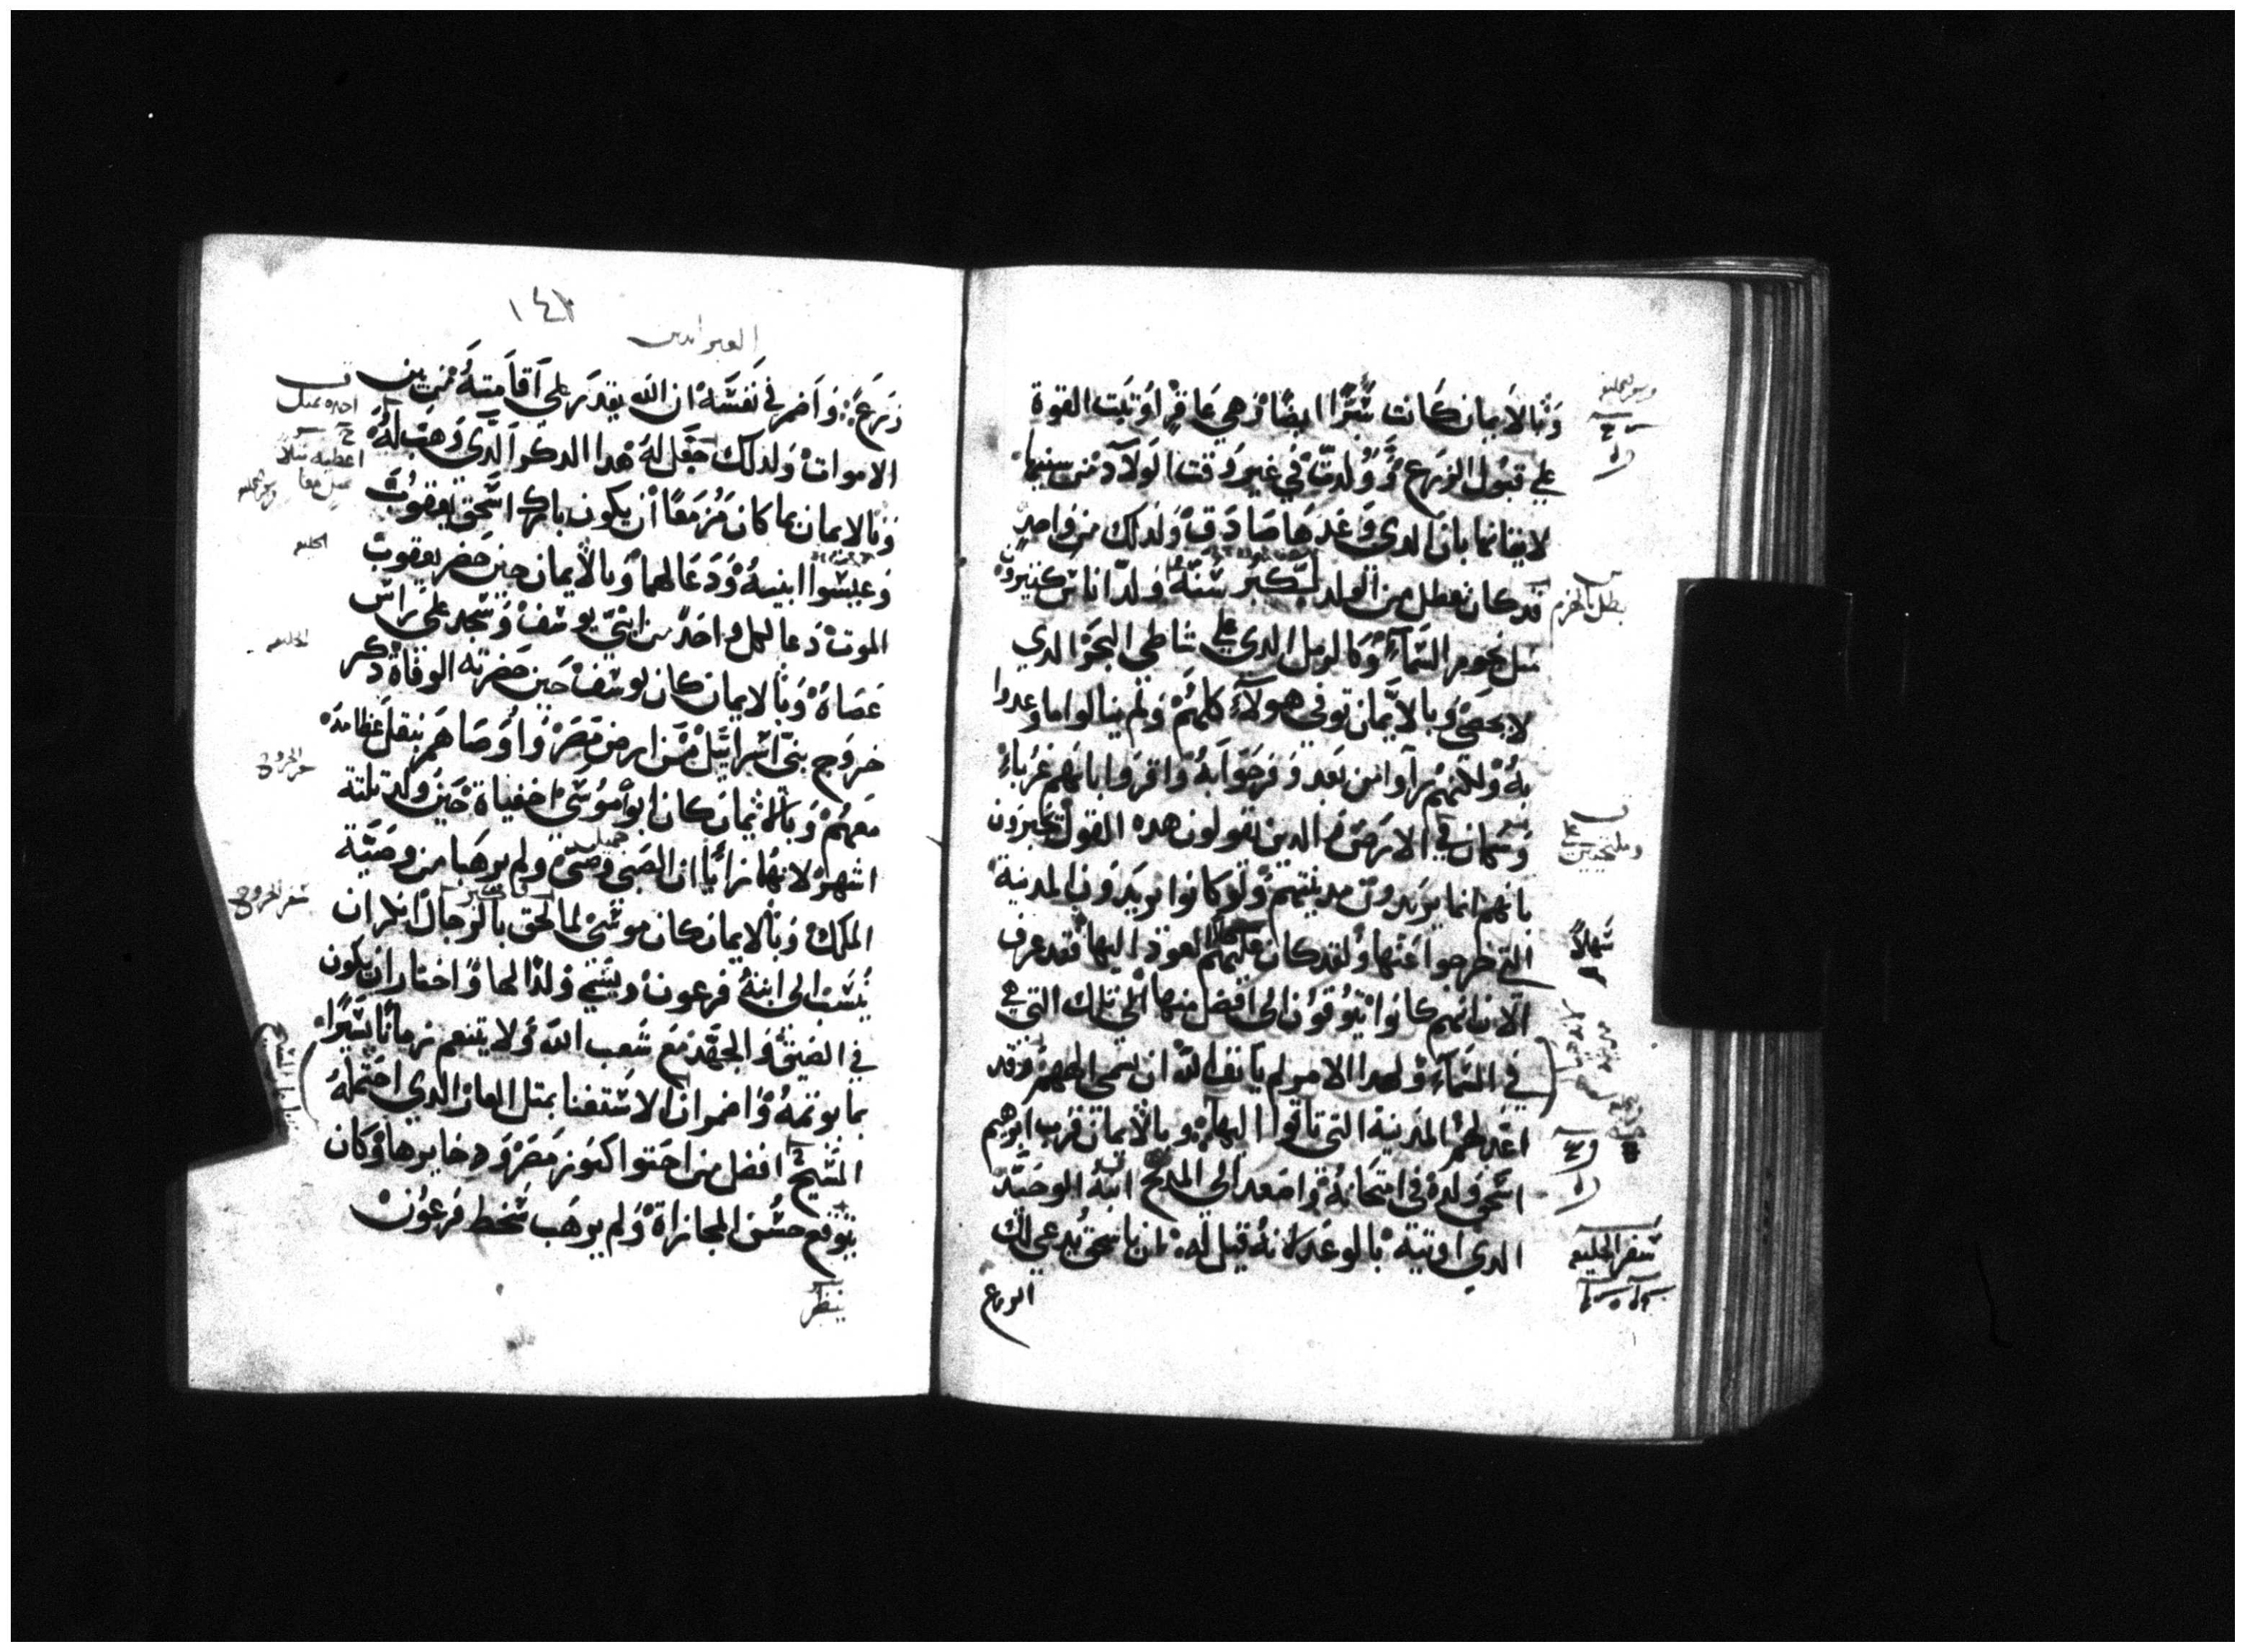 وبالايمان كانت سرا ايضا اذ هي عاقر اوتيت القوة
علي قبول الزرع وولدت في غير وقت الولاد من سنيها
لايقانها بان الدي وعدها صادق ولدلك من واحد
قد كان تعطل من الولد لكبر سنه ولد اناس كتيرون
متل نجوم السماء وكالرمل الدي علي شاطي البحر الدي
لا يحصي وبالايمان توفي هولاء كلهم ولم ينالوا ما وعدوا
به ولكنهم راوا من بعد وفرحوا به واقروا بانهم غرباء
وسكان في الارض والدين يقولون هده القول يخبرون
بانهم انما يريدون مدينتهم ولو كانوا يريدون المدينة
التي خرجوا عنها ولقد كان عليهم العود اليها فقد عرف
الان انهم كانوا يتوقون الي افضل منها الي تلك التي هي
في السماء ولهدا الامر لم يانف الله ان يسمي الههم وقد
اعد لهم المدينة التي تاقوا اليها وبالايمان قرب ابرهيم
اسحق ولده في امتحانه واصعد الي المدبح ابنه الوحيد
الدي اوتيه بالوعد لانه قيل له ان باسحق يدعي لك
الزرع
بطل بالهرم
سهلا
سفر الخليقه
١٤٢
العبرانيين
زرع واضمر في نفسه ان الله يقدر علي اقامته من بين
الاموات ولدلك جعل له هدا الدكر الدي وهب له
وبالايمان بما كان مزمعا ان يكون بارك اسحق يعقوب
وعيسوا ابنيه ودعا لهما وبالايمان حين حضر يعقوب
الموت دعا لكل واحد من ابني يوسف وسجد علي راس
عصاه وبالايمان كان يوسف حين حضرته الوفاة دكر
خروج بني اسراييل من ارض مصر واوصاهم بنقل عظامه
معهم وبالايمان كان ابوا موسي اخفياه حين ولد تلته
اشهر لانهما رايا ان الصبي وضي ولم يرهبا من وصية
الملك وبالايمان كان موسي لما لحق بالرجال انكر ان
ينسب الي ابنة فرعون ويسمي ولدا لها واختار ان يكون
في الضيق والجهد مع شعب الله ولا يتنعم زمانا يسيرا
بما يوتمه واضمر ان الاستغنا بمتل العار الدي احتمله
المسيح افضل من احتوا كنوز مصر ودخايرها وكان
يتوقع حسن المجازاة ولم يرهب سخط فرعون
ينظر
اعطيه
الخليقه
سفر الخروج